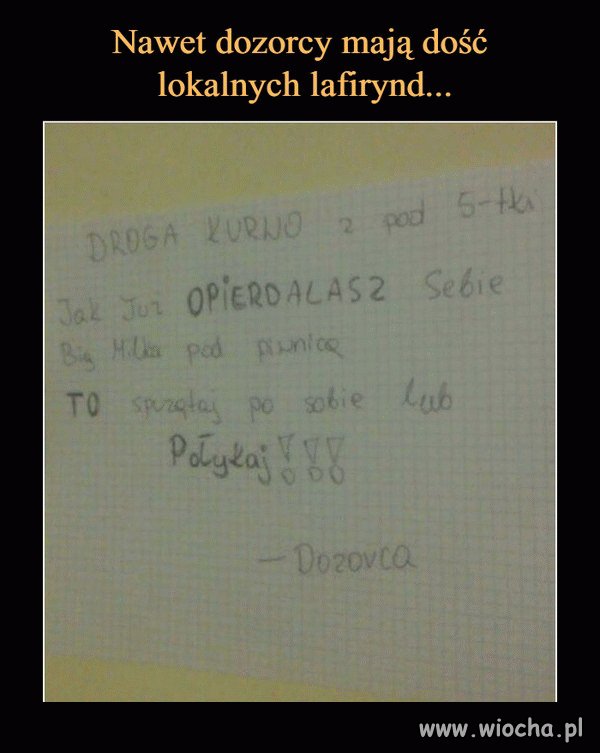 Nawet dozorcy mają dość
lokalnych lafirynd...
DROGA KURWO z pod 5-tki
Jak Już OPIERDALASZ Sebie
Big Milka pod piwnicą
TO sprzątaj po sobie lub
Połykaj!!!
- Dozorca
www.wiocha.pl